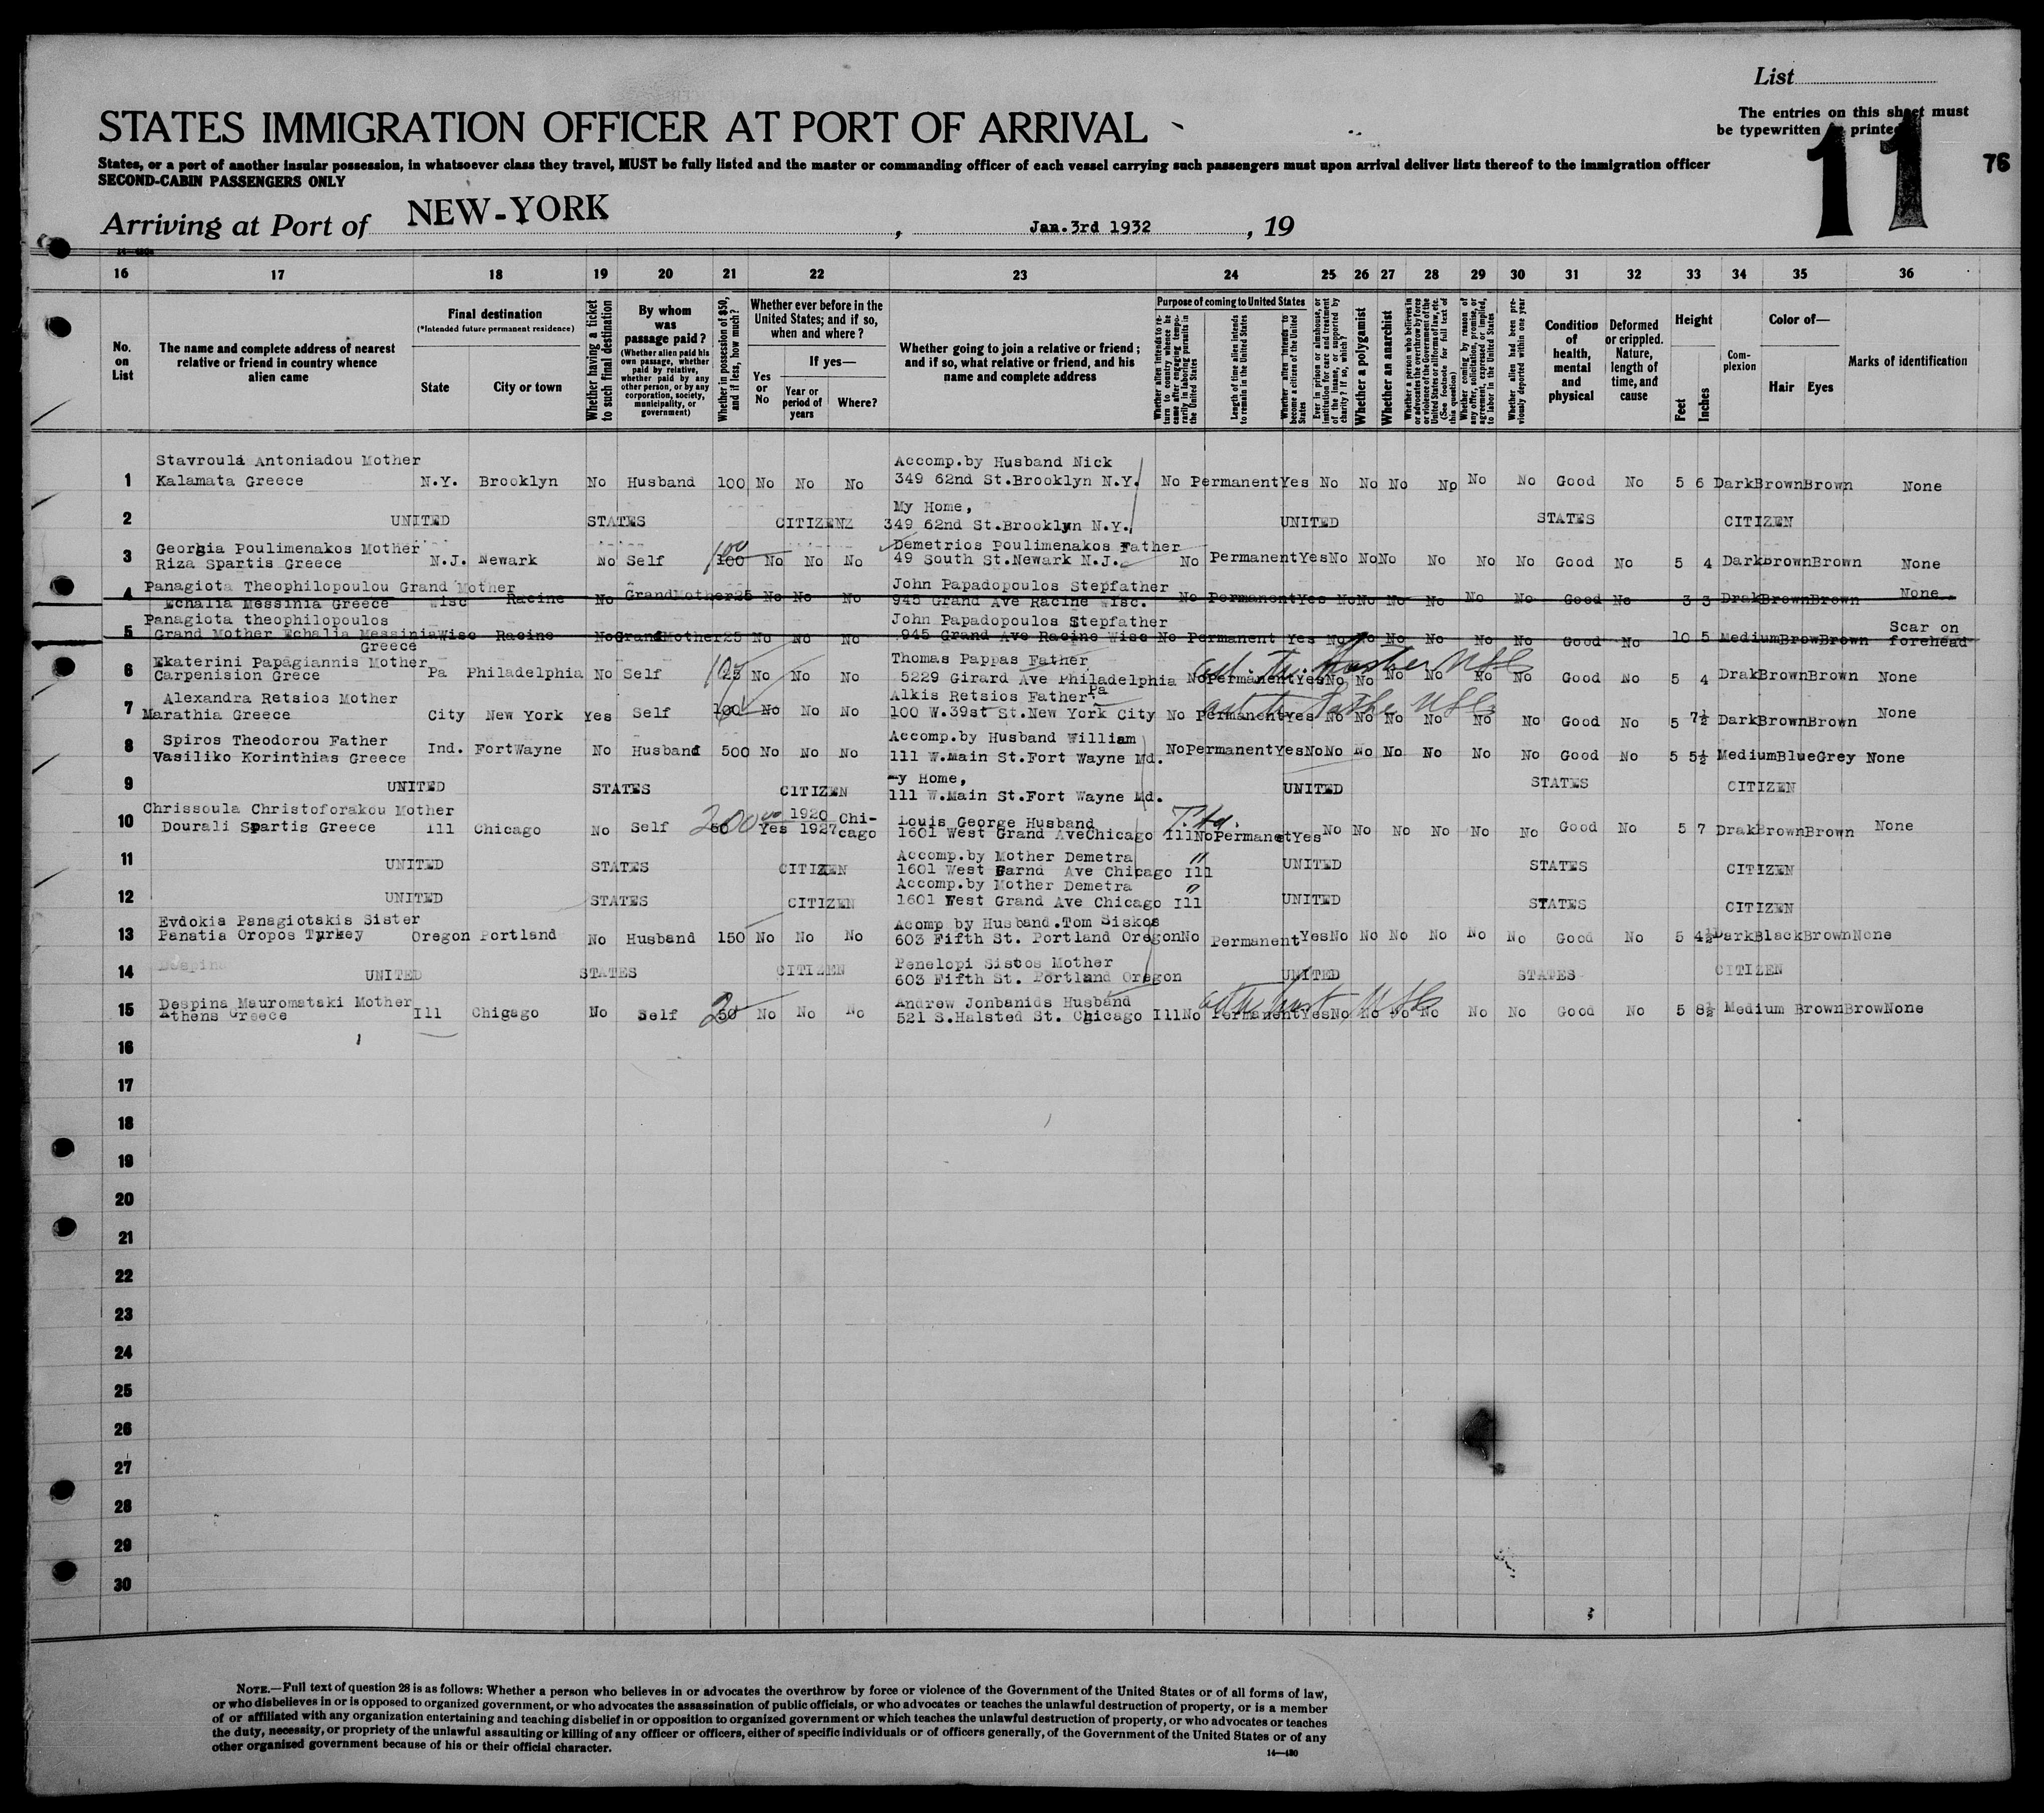 List
The entries on this sheet must
be typewritten or printed
11
76
STATES IMMIGRATION OFFICER AT PORT OF ARRIVAL
States, or a port of another insular possession, in whatsoever class they travel, MUST be fully listed and the master or commanding officer of each vessel carrying such passengers must upon arrival deliver lists thereof to the immigration officer
SECOND-CABIN PASSENGERS ONLY
Arriving at Port of NEW-YORK, Jan.3rd 1932, 19
16 17 18 19 20 21 22 23 24 25 26 27 28 29 30 31 32 33 34 35 36
No. on List
The name and complete address of nearest relative or friend in country whence alien came
Final destination
(*Intended future permanent residence)
State
City or town
Whether having a ticket to such final destination
By whom was passage paid?
(Whether alien paid his own passage, whether paid by relative, whether paid by any other person, or by any corporation, society, municipality, or government)
Whether in possession of $50, and if less, how much?
Whether ever before in the United States; and if so, when and where?
If yes—
Yes or No
Year or period of years
Where?
Whether going to join a relative or friend; and if so, what relative or friend, and his name and complete address
Purpose of coming to United States
Whether alien intends to return to country whence he came after engaging temporarily in laboring pursuits in the United States
Length of time alien intends to remain in the United States
Whether alien intends to become a citizen of the United States
Ever in prison or almshouse, or institution for care and treatment of the insane, or supported by charity? If so, which?
Whether a polygamist
Whether an anarchist
Whether a person who believes in or advocates the overthrow by force or violence of the Government of the United States or all forms of law, etc. (See footnote for full text of this question)
Whether coming by reason of any offer, solicitation, promise, or agreement, expressed or implied, to labor in the United States
Whether alien had been previously deported within one year
Condition of health, mental and physical
Deformed or crippled. Nature, length of time, and cause
Height
Feet
Inches
Complexion
Color of—
Hair
Eyes
Marks of identification
Stavroula Antoniadou Mother Accomp.by Husband Nick
1 Kalamata Greece N.Y. Brooklyn No Husband 100 No No No 349 62nd St.Brooklyn N.Y. No Permanent Yes No No No No No No Good No 5 6 Dark Brown Brown None
My Home,
2 UNITED STATES CITIZENZ 349 62nd St.Brooklyn N.Y. UNITED STATES CITIZEN
Georgia Poulimenakos Mother 100 Demetrios Poulimenakos Father
3 Riza Spartis Greece N.J. Newark No Self 100 No No No 49 South St.Newark N.J. No Permanent Yes No No No No No No Good No 5 4 Dark brown Brown None
Panagiota Theophilopoulou Grand Mother John Papadopoulos Stepfather
4 Echalia Messinia Greece Wisc Racine No GrandMother 25 No No No 945 Grand Ave Racine Wisc. No Permanent Yes No No No No No No Good No 3 3 Drak Brown Brown None
Panagiota theophilopoulos John Papadopoulos Stepfather Scar on
5 Grand Mother Echalia Messinia Wisc Racine No GrandMother 25 No No No 945 Grand Ave Racine Wisc No Permanent Yes No No No No No No Good No 10 5 Medium Brow Brown forehead
Greece
Ekaterini Papagiannis Mother Thomas Pappas Father
6 Carpenision Grece Pa Philadelphia No Self 25 No No No 5229 Girard Ave Philadelphia No Permanent Yes No No No No No No Good No 5 4 Drak Brown Brown None
Pa
Alexandra Retsios Mother Alkis Retsios Father
7 Marathia Greece City New York Yes Self 100 No No No 100 W.39st St.New York City No Permanent Yes No No No No No No Good No 5 7½ Dark Brown Brown None
Spiros Theodorou Father Accomp.by Husband William
8 Vasiliko Korinthias Greece Ind. FortWayne No Husband 500 No No No 111 W.Main St.Fort Wayne Md. No Permanent Yes No No No No No No No Good No 5 5½ Medium Blue Grey None
My Home,
9 UNITED STATES CITIZEN 111 W.Main St.Fort Wayne Md. UNITED STATES CITIZEN
Chrissoula Christoforakou Mother 200 1920 Chi- Louis George Husband
10 Dourali Spartis Greece Ill Chicago No Self 50 Yes 1927 cago 1601 West Grand Ave Chicago Ill No Permanet Yes No No No No No No Good No 5 7 Drak Brown Brown None
Accomp.by Mother Demetra "
11 UNITED STATES CITIZEN 1601 West Garnd Ave Chicago Ill UNITED STATES CITIZEN
Accomp.by Mother Demetra "
12 UNITED STATES CITIZEN 1601 West Grand Ave Chicago Ill UNITED STATES CITIZEN
Evdokia Panagiotakis Sister Acomp by Husband.Tom Siskos
13 Panatia Oropos Turkey Oregon Portland No Husband 150 No No No 603 Fifth St. Portland Oregon No Permanent Yes No No No No No No Good No 5 4½ Dark Black Brown None
Despina Penelopi Siscos Mother
14 UNITED STATES CITIZEN 603 Fifth St. Portland Oregon UNITED STATES CITIZEN
Despina Mauromataki Mother Andrew Jonbanids Husband
15 Athens Greece Ill Chigago No Self 50 No No No 521 S.Halsted St. Chicago Ill No Permanent Yes No No No No No No Good No 5 8½ Medium Brown Brow None
16
17
18
19
20
21
22
23
24
25
26
27
28
29
30
NOTE.—Full text of question 28 is as follows: Whether a person who believes in or advocates the overthrow by force or violence of the Government of the United States or of all forms of law,
or who disbelieves in or is opposed to organized government, or who advocates the assassination of public officials, or who advocates or teaches the unlawful destruction of property, or is a member
of or affiliated with any organization entertaining and teaching disbelief in or opposition to organized government or which teaches the unlawful destruction of property, or who advocates or teaches
the duty, necessity, or propriety of the unlawful assaulting or killing of any officer or officers, either of specific individuals or of officers generally, of the Government of the United States or of any
other organized government because of his or their official character.
14—480